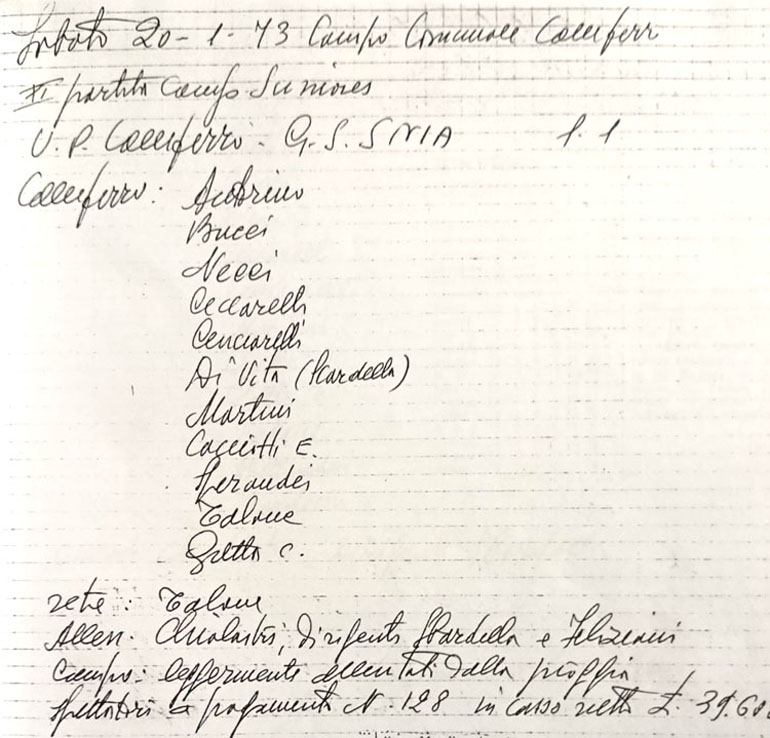 Sabato 20-1-73 Campo Comunale Colleferr
XI partita Camp. Juniores
U.P. Colleferro - G.S. SNIA 1.1
Colleferro: 
Bucci
Necci
Ceccarelli
Cenciarelli
Di Vita (Scardella)
Martini
Cacciotti E.
Sperandei
Talone
C.
rete: Talone
Allen. Chialastri, dirigenti Sbardella e Feliziani
Campo: leggermente allentato dalla pioggia
Spettatori a pagamento N. 128 incasso netto £. 39.60